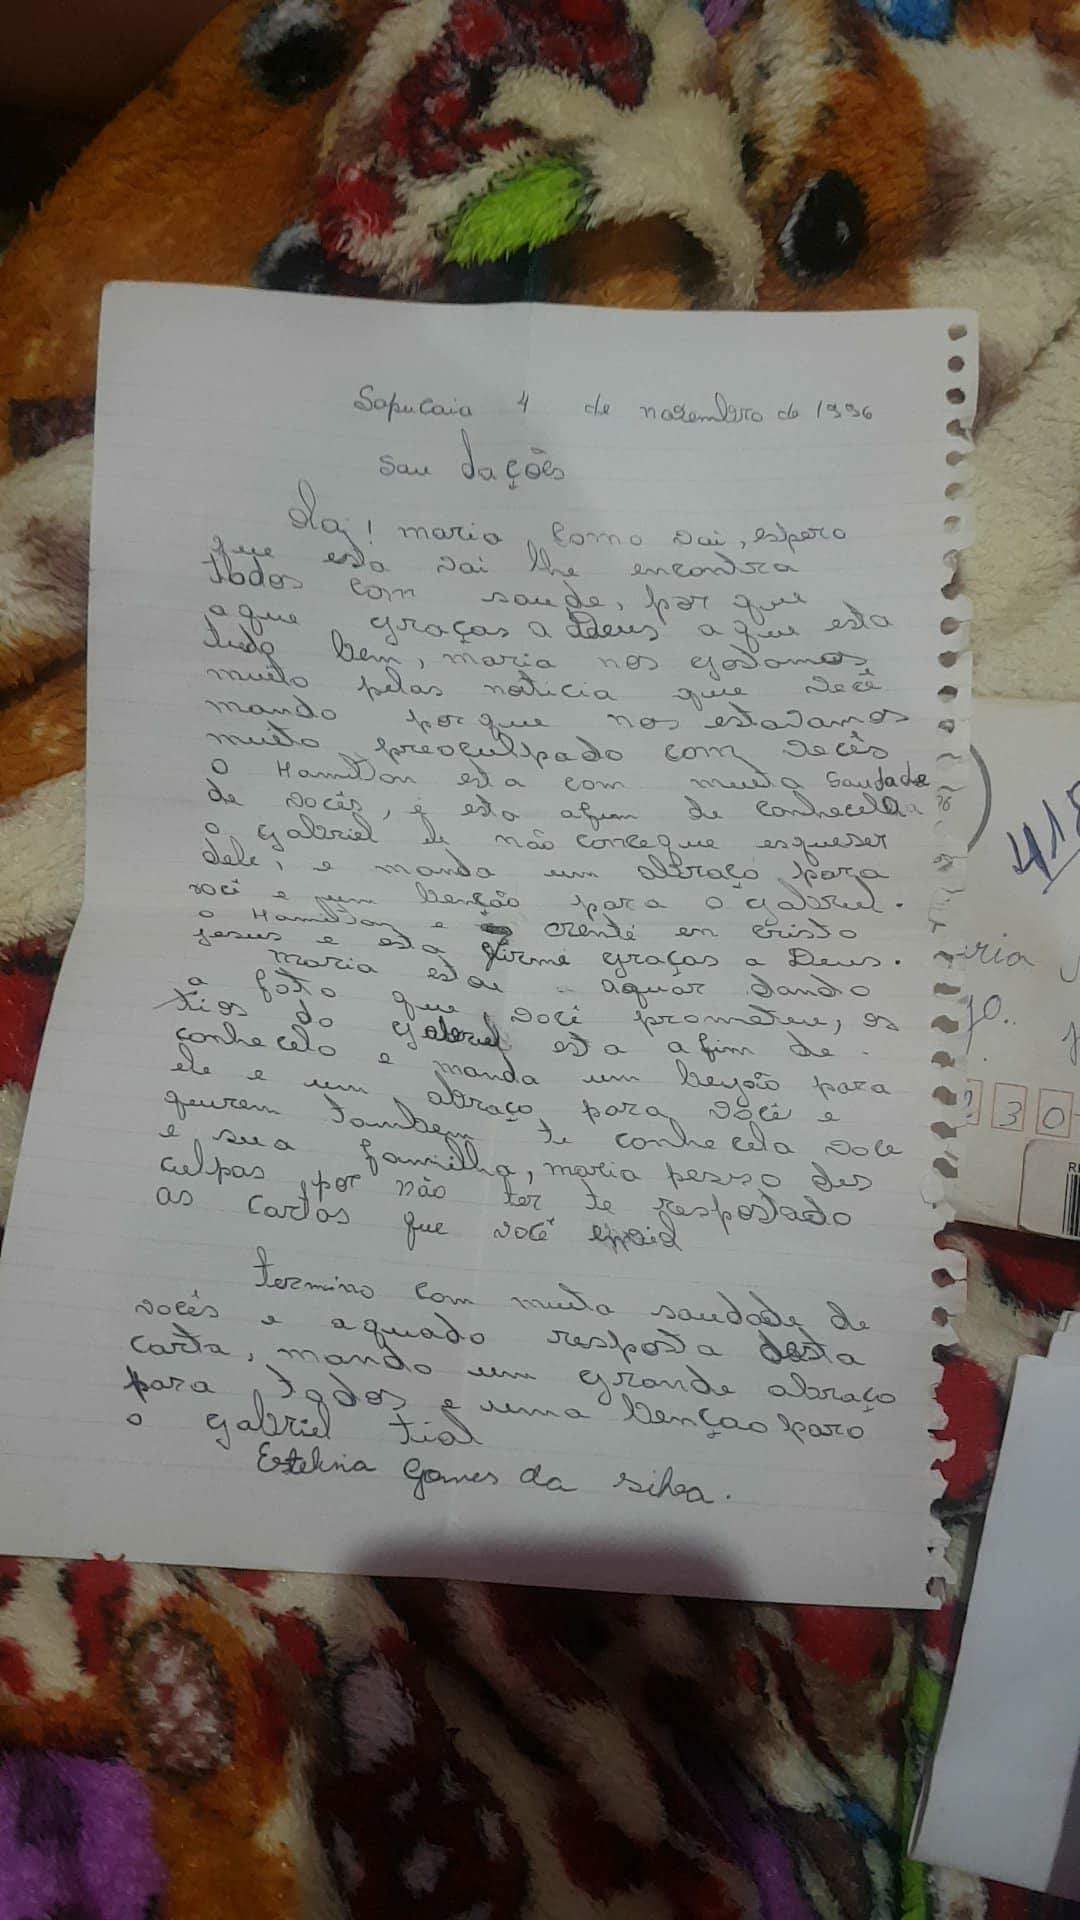 Sapucaia 4 de novembro de 1996
Sau dações
Olaj! maria como vai, espero
que esta vai lhe encontra
todos com saude, por que
aque graças a Deus aque esta
tudo bem, maria nos gostamos
muito pelas noticia que você
mando porque nos estavamos
muito preoculpado com vocês
o Hamilton esta com muita Saudade
de vocês, e esta afim de conhecela
o gabriel ele não concegue esqueser
dele, e manda um abraço para
você e um benção para o gabriel.
o Hamilton e crente en Cristo
jesus e esta firme graças a Deus.
maria estou aquar dando
a foto que você prometeu, os
tios do gabriel esta afim de
conhecelo e manda um beyjo para
ele e um abraço para você e
queurem tambem te conhecela voce
e sua familha, maria pesso des
culpas por não ter te respostado
as cartas que você
termino com muita saudade de
vocês e aquado resposta desta
carta, mando um grande abraço
para todos e uma bençao para
o gabriel
Estelina Gomes da silva.
418
ria
30